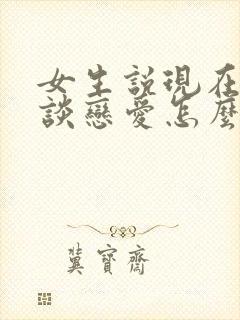 女生説現在
談戀愛怎麼
冀寶齋